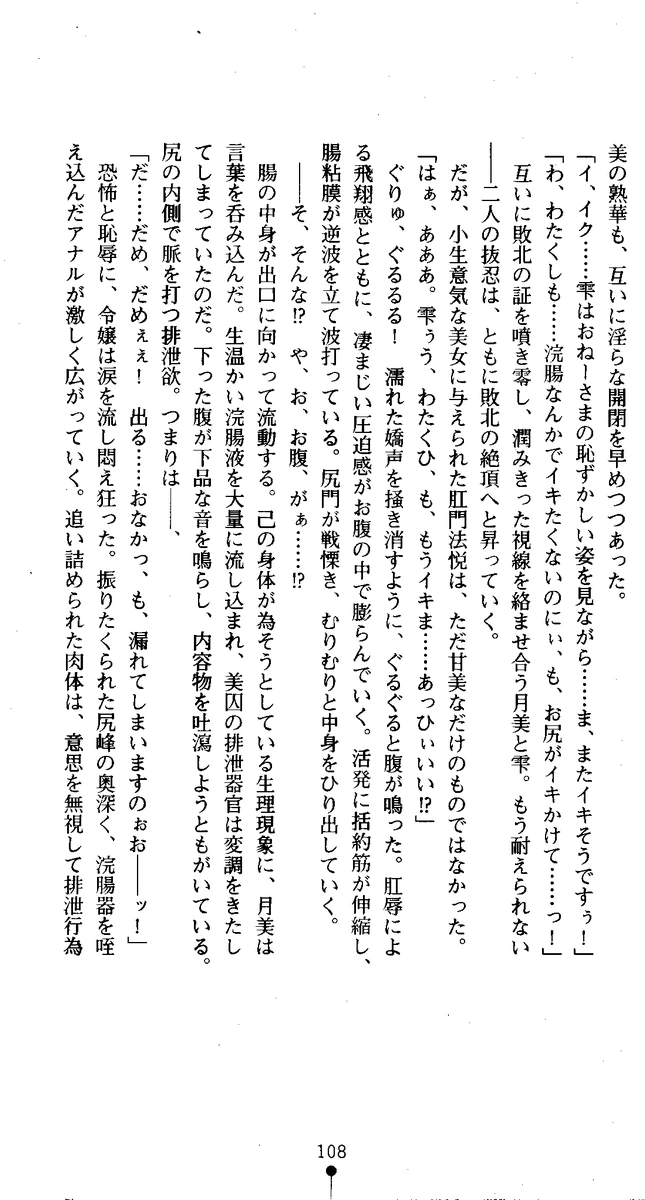 美の熟華も、互いに淫らな開閉を早めつつあった。
「イ、イク……雫はおねーさまの恥ずかしい姿を見ながら……ま、またイキそうですぅ！」
「わ、わたくしも……浣腸なんかでイキたくないのにぃ、も、お尻がイキかけて……っ！」
互いに敗北の証を噴き零し、潤みきった視線を絡ませ合う月美と雫。もう耐えられない
――二人の抜忍は、ともに敗北の絶頂へと昇っていく。
だが、小生意気な美女に与えられた肛門法悦は、ただ甘美なだけのものではなかった。
「はぁ、あああ。雫ぅう、わたくひ、も、もうイキま……あっひぃいい!?」
ぐりゅ、ぐるるる！　濡れた嬌声を掻き消すように、ぐるぐると腹が鳴った。肛辱によ
る飛翔感とともに、凄まじい圧迫感がお腹の中で膨らんでいく。活発に括約筋が伸縮し、
腸粘膜が逆波を立て波打っている。尻門が戦慄き、むりむりと中身をひり出していく。
――そ、そんな!?　や、お、お腹、がぁ……!?
腸の中身が出口に向かって流動する。己の身体が為そうとしている生理現象に、月美は
言葉を呑み込んだ。生温かい浣腸液を大量に流し込まれ、美囚の排泄器官は変調をきたし
てしまっていたのだ。下った腹が下品な音を鳴らし、内容物を吐瀉しようともがいている。
尻の内側で脈を打つ排泄欲。つまりは――、
「だ……だめ、だめぇぇ！　出る……おなかっ、も、漏れてしまいますのぉお――ッ！」
恐怖と恥辱に、令嬢は涙を流し悶え狂った。振りたくられた尻峰の奥深く、浣腸器を咥
え込んだアナルが激しく広がっていく。追い詰められた肉体は、意思を無視して排泄行為
108